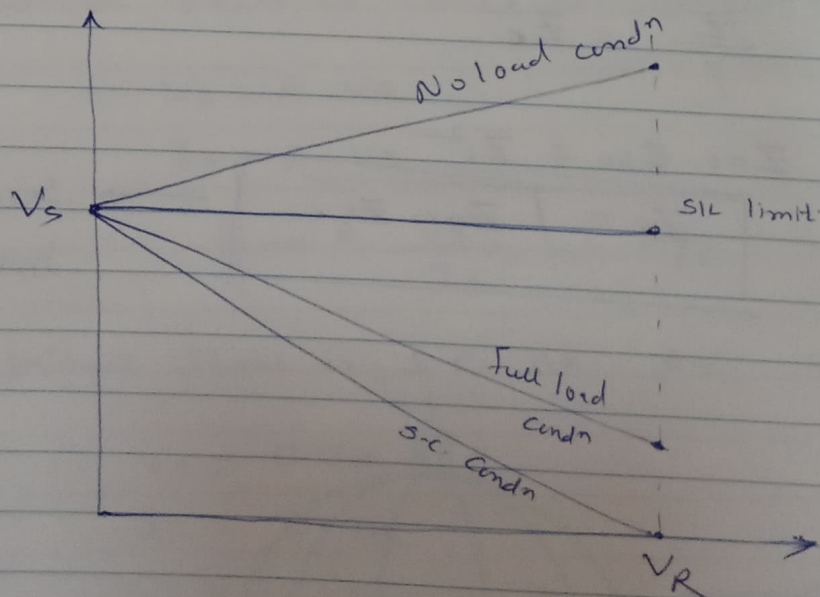 No load condn
Vs
SIL limit
Full load
condn
s.c. condn
VR